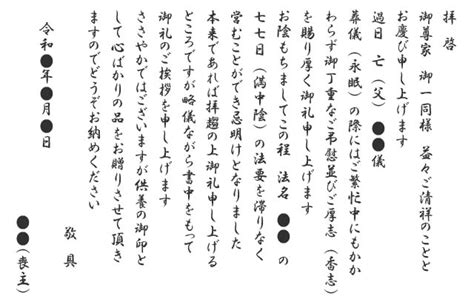 拝啓
御尊家　御一同様　益々ご清祥のことと
お慶び申し上げます
過日　亡（父）　●●儀
葬儀（永眠）の際にはご繁忙中にもかか
わらず御丁重なご弔慰並びご厚志（香志）
を賜り厚く御礼申し上げます
お陰もちましてこの程　法名　●●　の
七七日（満中陰）の法要を滞りなく
営むことができ忌明けとなりました
本来であれば拝趨の上御礼申し上げる
ところですが略儀ながら書中をもって
御礼のご挨拶を申し上げます
ささやかではございますが供養の御印と
して心ばかりの品をお贈りさせて頂き
ますのでどうぞお納めください
敬具
令和●年●月●日
●●（喪主）